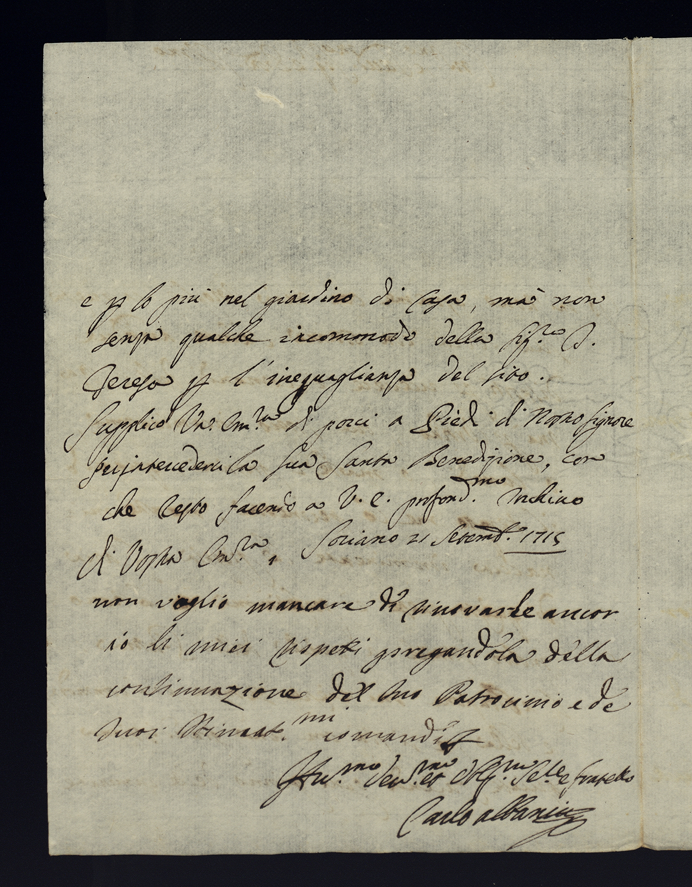 e p lo più nel giardino di Casa, mà non
senza qualche incommodo della Sig.ra D.
Teresa p l'inequaglianza del sito.
Supplico Va. Em.za di porci a Piedi di Nostro Signore
per intercederci la Sua Santa Benedizione, con
che resto facendo a V. E. profond.mo Inchino
di Vostra Em.za, Soriano 21 Settemb.e 1715
non voglio mancare di rinovarle ancor
io li miei rispeti pregandola della
continuazione del suo Patrocinio e de
suoi stimat.mi comandi
Hu.mo Dev.mo et Obl.mo e fratello
Carlo Albani